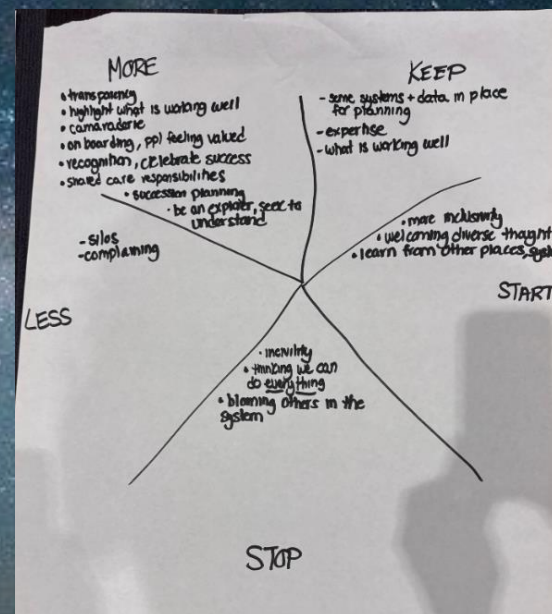 MORE
• transparency
• highlight what is working well
• camaraderie
• on boarding, ppl feeling valued
• recognition, celebrate success
• shared care responsibilities
• succession planning
• be an explorer, seek to
understand
KEEP
- some systems + data in place
for planning
- expertise
- what is working well
• more inclusivity
• welcoming diverse thought
• learn from other places,
START
- silos
- complaining
LESS
• incivility
• thinking we can
do everything
• blaming others in the
system
STOP